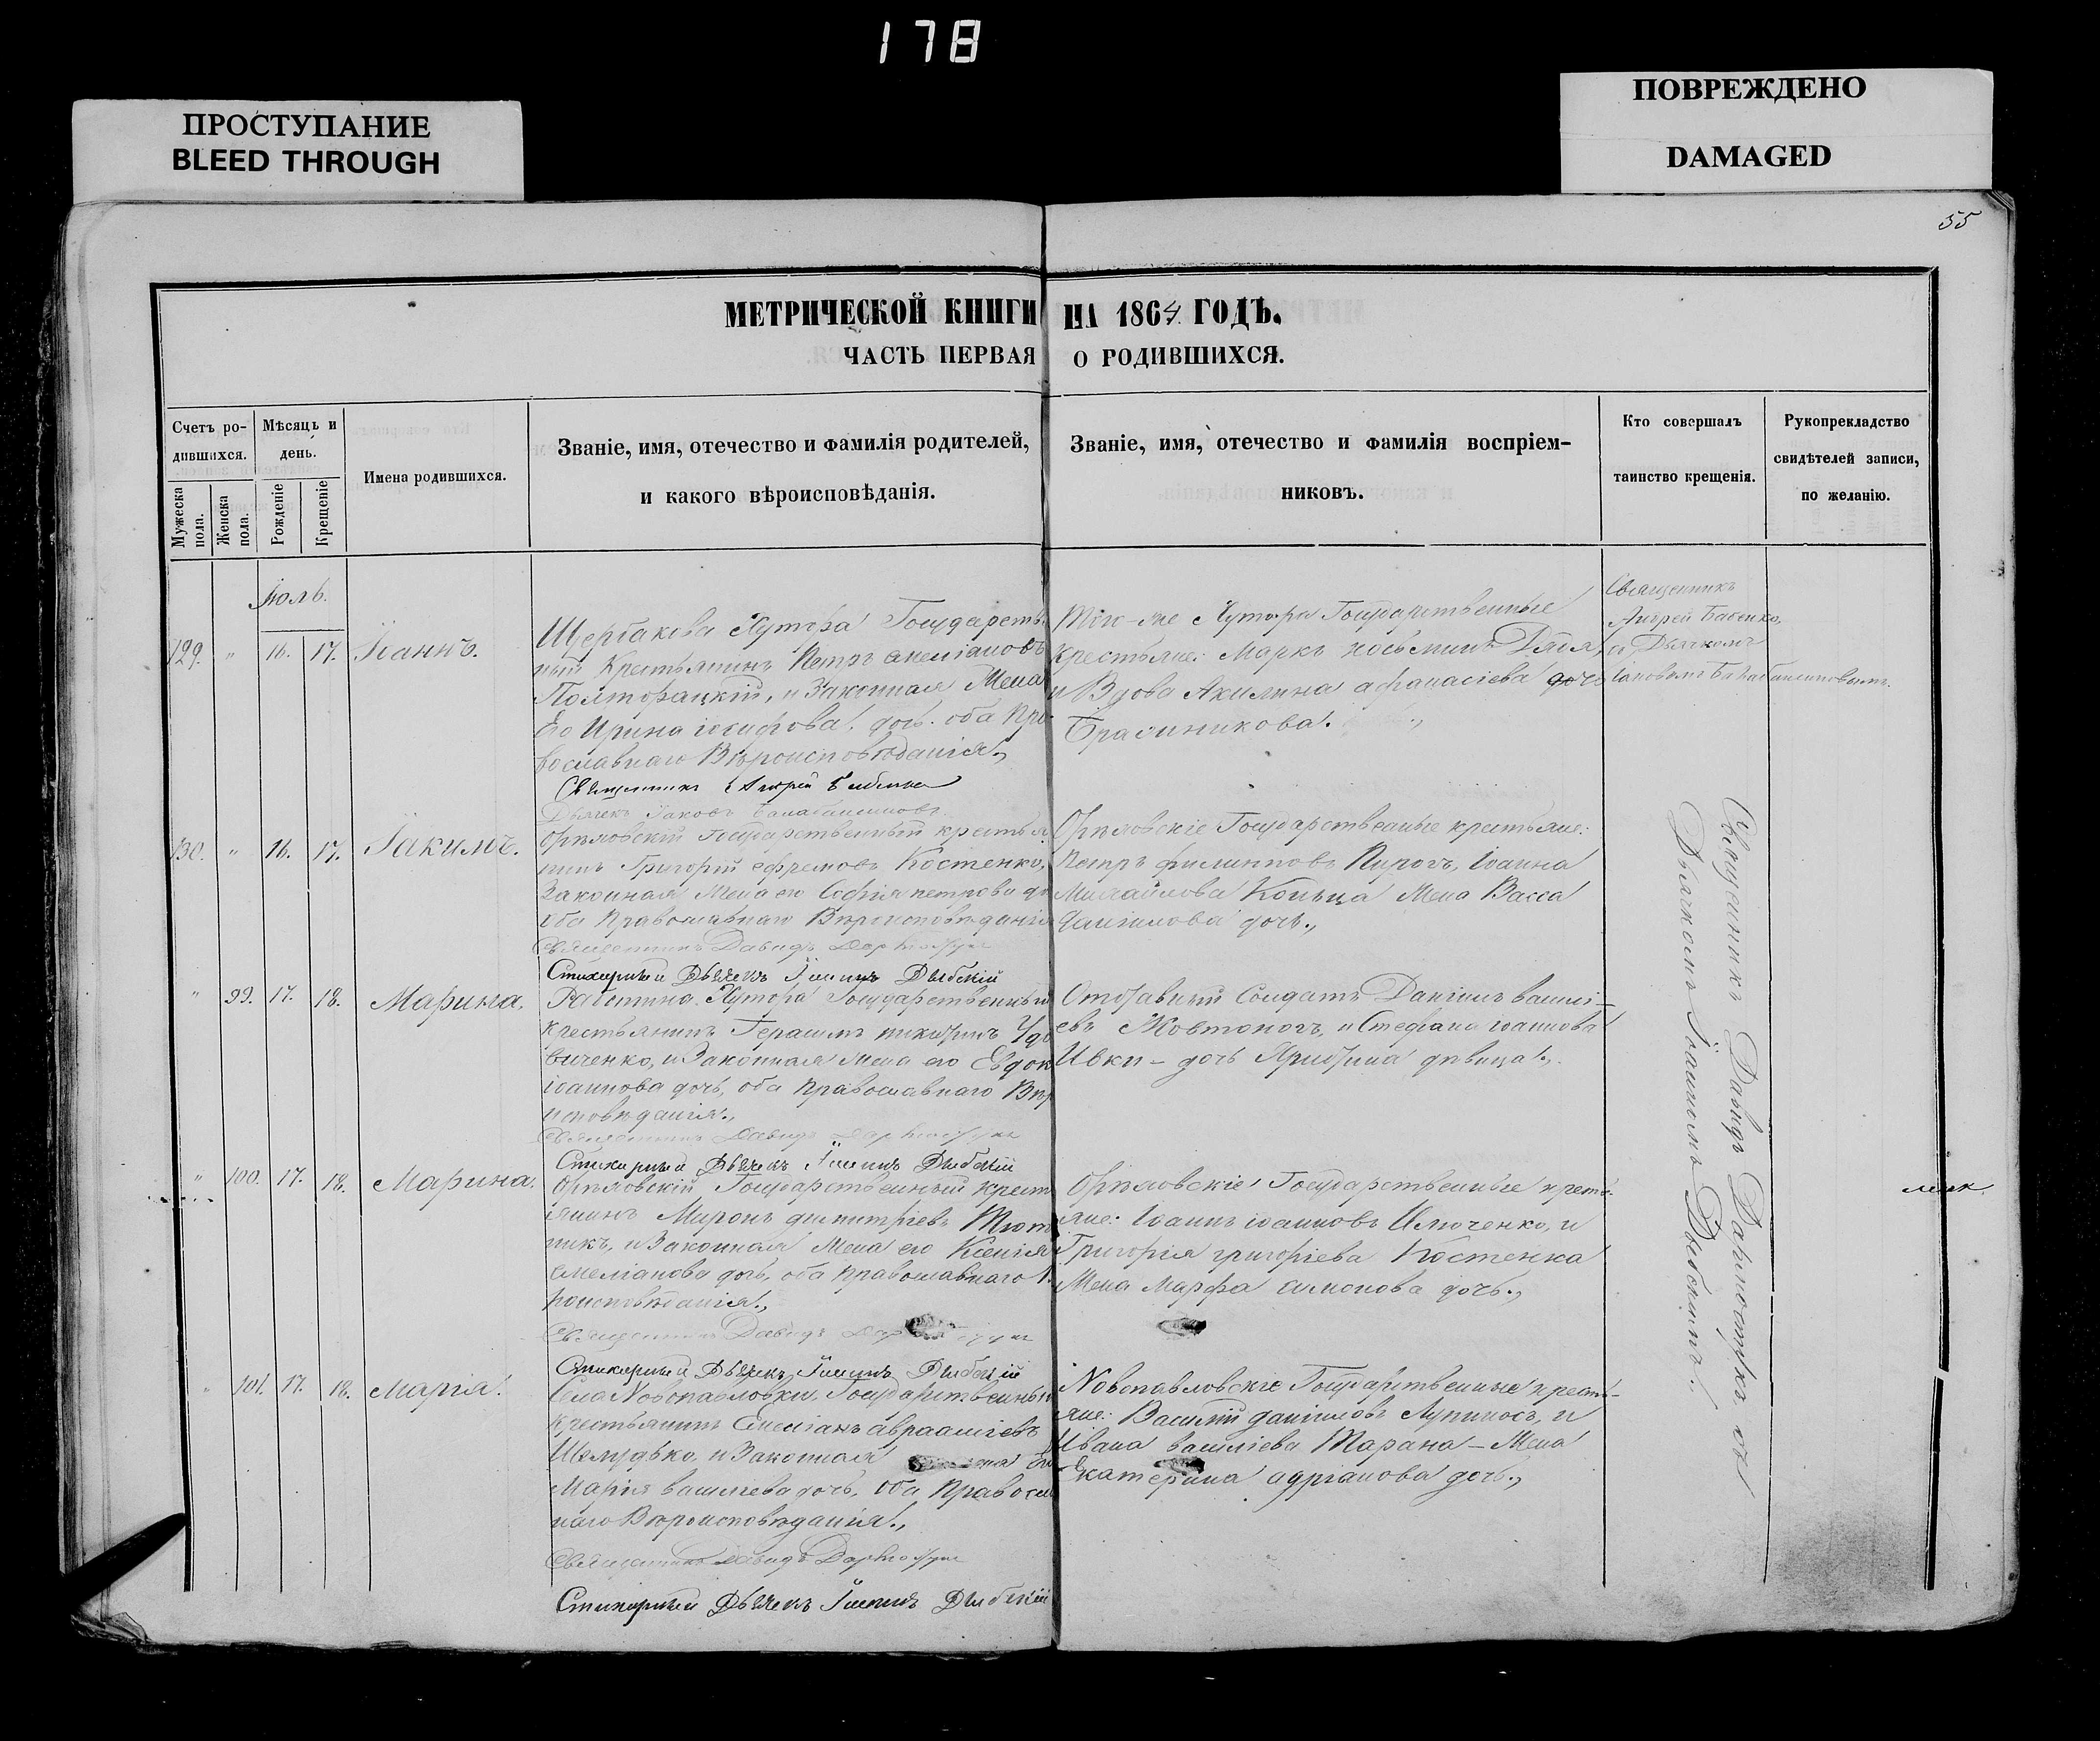 178
ПРОСТУПАНИЕ
BLEED THROUGH
ПОВРЕЖДЕНО
DAMAGED
55
МЕТРИЧЕСКОЙ КНИГИ НА 1864 ГОДЪ.
ЧАСТЬ ПЕРВАЯ О РОДИВШИХСЯ.
Счетъ ро-
дившихся.
Мужеска пола.
Женска пола.
Мѣсяцъ и
день.
Рожденіе
Крещеніе
Имена родившихся.
Званіе, имя, отечество и фамилія родителей,
и какого вѣроисповѣданія.
Званіе, имя, отечество и фамилія воспріем-
никовъ.
Кто совершалъ
таинство крещенія.
Рукоприкладство
свидѣтелей записи,
по желанію.
Іюль.
129. " 16. 17. Іоаннъ.
Щербакова Хутора Государств
ный Крестьянинъ Петръ емеліановъ
Полторацкій, и Законная Жена
Его Ирина іосифова дочь. оба Пра
вославнаго Вѣроисповѣданія.,
Священникъ Андрей Бабенко
Дьячекъ Іаковъ
Того-же Хутора Государственные
крестьяне: Маркъ
и Вдова Акилина афанасіева дочь
Священникъ
Андрей Бабенко,
съ Дьячкомъ
130. " 16. 17. Іакимъ.
Орѣховскій Государственный крестья
нинъ Григорій ефремовъ Костенко,
Законная Жена его Софія петрова до
оба Православнаго Вѣроисповѣданія
Священникъ Давидъ
Стихарный Дьячекъ Іоаннъ
Орѣховскіе Государственные крестьяне:
Петръ филипповъ Пирогъ, Іоанна
Михайлова Жена Васса
даніилова дочь.,
" 99. 17. 18. Марина.
Хутора Государственный
крестьянинъ Герасимъ никитинъ Удо
виченко, и Законная Жена его Евдок
іоаннова дочь, оба Православнаго Вѣр
исповѣданія.,
Священникъ Давидъ
Стихарный Дьячекъ Іоаннъ
Отставный Солдатъ Даніилъ василі-
евъ Жовтоногъ, и Стефана іоаннова
Ивки - дочь дѣвица.,
" 100. 17. 18. Марина.
Орѣховскій Государственный крест
янинъ Миронъ димитріевъ Тют
никъ, и Законная Жена его Ксенія
емеліанова дочь, оба православнаго В
роисповѣданія.,
Священникъ Давидъ
Стихарный Дьячекъ Іоаннъ
Орѣховскіе Государственные кресть-
яне: Іоаннъ іоанновъ Ильюченко, и
Григорія григоріева Костенка
Жена Марфа симонова дочь.,
" 101. 17. 18. Марія.
Села Новопавловки, Государственный
Крестьянинъ Емеліанъ аврааміевъ
и Законная
Марія васильева дочь, оба Правосла
наго Вѣроисповѣданія.,
Священникъ Давидъ
Стихарный Дьячекъ Іоаннъ
Новопавловскіе Государственные кресть-
яне: Василій даніиловъ Лупиносъ, и
Ивана василіева Тарана - Жена
Екатерина адріанова дочь.,
Священникъ Давидъ съ
Дьячкомъ Іоанномъ